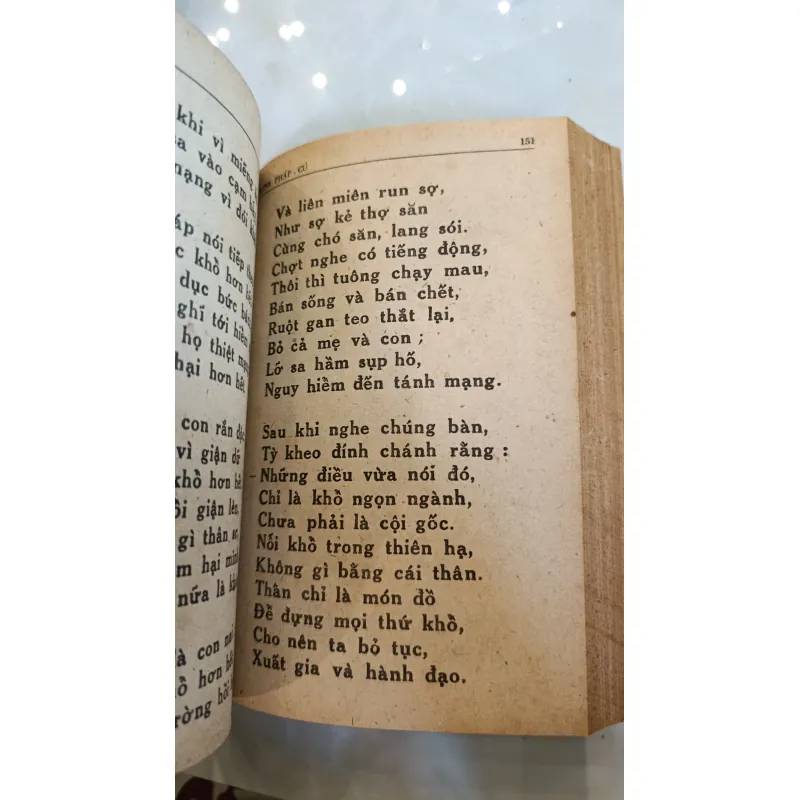 khi vì miếng
vào cạm
mạng vì đói
nói tiếp
khổ hơn
dục bức
nghĩ tới hiểm
họ thiệt mạng
hại hơn hết
con rắn độc
vì giận dữ
khổ hơn hết
giận lên,
gì thân
hại mình
nữa là
con nai
hơn
PHÁP-CÚ 151
Và liên miên run sợ,
Như sợ kẻ thợ săn
Cùng chó săn, lang sói.
Chợt nghe có tiếng động,
Thôi thì tuông chạy mau,
Bán sống và bán chết,
Ruột gan teo thắt lại,
Bỏ cả mẹ và con ;
Lỡ sa hầm sụp hố,
Nguy hiểm đến tánh mạng.
Sau khi nghe chúng bàn,
Tỳ kheo đính chánh rằng :
— Những điều vừa nói đó,
Chỉ là khổ ngọn ngành,
Chưa phải là cội gốc.
Nỗi khổ trong thiên hạ,
Không gì bằng cái thân.
Thân chỉ là món đồ
Để đựng mọi thứ khổ,
Cho nên ta bỏ tục,
Xuất gia và hành đạo.